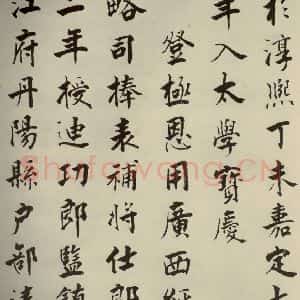 於淳熙丁未嘉定十
年入太學寶慶
登極恩用廣西經
略司捧表補將仕郎
二年授迪功郎監鎮
江府丹陽縣戶部
Shufawang.CN